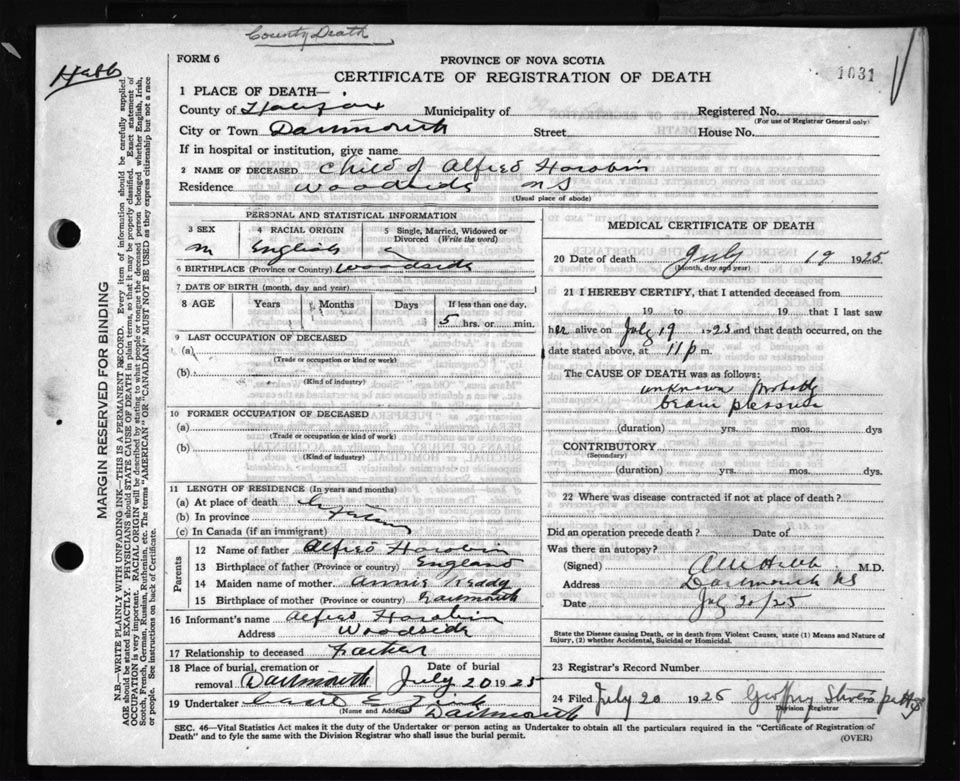 County Death
Hebb
FORM 6
PROVINCE OF NOVA SCOTIA
CERTIFICATE OF REGISTRATION OF DEATH
1031
1 PLACE OF DEATH—
County of Halifax Municipality of Registered No.
(For use of Registrar General only)
City or Town Dartmouth Street House No.
If in hospital or institution, give name
2 NAME OF DECEASED Child of Alfred Horobin
Residence Woodside N S
(Usual place of abode)
PERSONAL AND STATISTICAL INFORMATION
3 SEX 4 RACIAL ORIGIN 5 Single, Married, Widowed or Divorced (Write the word)
m English S
6 BIRTHPLACE (Province or Country) Woodside
7 DATE OF BIRTH (month, day, and year)
8 AGE Years Months Days If less than one day,
5 hrs. or min.
9 LAST OCCUPATION OF DECEASED
(a)
(Trade or occupation or kind or work)
(b)
(Kind of industry)
10 FORMER OCCUPATION OF DECEASED
(a)
(Trade or occupation or kind of work)
(b)
(Kind of industry)
11 LENGTH OF RESIDENCE (In years and months)
(a) At place of death
(b) In province
(c) In Canada (if an immigrant)
Parents
12 Name of father Alfred Horobin
13 Birthplace of father (Province or country) England
14 Maiden name of mother Annie Keddy
15 Birthplace of mother (Province or Country) Dartmouth
16 Informant's name Alfred Horobin
Address Woodside
17 Relationship to deceased Father
18 Place of burial, cremation or removal Dartmouth Date of burial July 20 1925
19 Undertaker
(Name and Address) Dartmouth
MEDICAL CERTIFICATE OF DEATH
20 Date of death July 19 1925
(Month, day and year)
21 I HEREBY CERTIFY, that I attended deceased from
19 to 19 that I last saw
her alive on July 19 1925 and that death occurred, on the
date stated above, at 11 p m.
The CAUSE OF DEATH was as follows:
unknown probably
brain pressure
(duration) yrs. mos. dys
CONTRIBUTORY
(Secondary)
(duration) yrs. mos. dys.
22 Where was disease contracted if not at place of death?
Did an operation precede death? Date of
Was there an autopsy?
(Signed) Hebb M.D.
Address Dartmouth NS
Date July 20/25
State the Disease causing Death, or in death from Violent Causes, state (1) Means and Nature of
Injury, (2) whether Accidental, Suicidal or Homicidal.
23 Registrar's Record Number
24 Filed July 20 1925 Geoffrey Stevens
Division Registrar
SEC. 46—Vital Statistics Act makes it the duty of the Undertaker or person acting as Undertaker to obtain all the particulars required in the "Certificate of Registration of
Death" and to fyle the same with the Division Registrar who shall issue the burial permit.
(OVER)
MARGIN RESERVED FOR BINDING
N.B.—WRITE PLAINLY WITH UNFADING INK—THIS IS A PERMANENT RECORD. Every item of information should be carefully supplied.
AGE should be stated EXACTLY. PHYSICIANS should STATE CAUSE OF DEATH in plain terms, so that it may be properly classified. Exact statement of
OCCUPATION is very important. RACIAL ORIGIN will be described by stating to what people or tongue the deceased person belonged whether English, Irish,
Scotch, French, German, Russian, Ruthenian, etc. The terms "AMERICAN" OR "CANADIAN" MUST NOT BE USED as they express citizenship but not a race
or people. See instructions on back of Certificate.